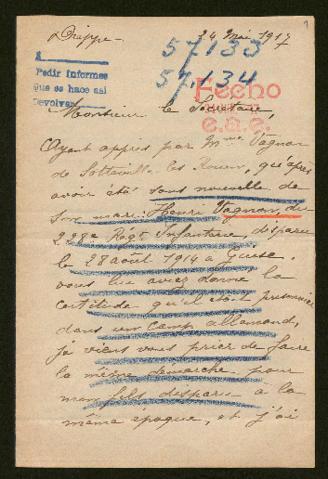 1
Dieppe - 24 Mai 1917
57133
57.134
A
Pedir Informes
que se hace asi
Devolver
Fecho
e.a.e.
Monsieur le Secrétaire,
Ayant appris par Mme Vagnon
de Sotteville les Rouen, qu'après
avoir été sans nouvelle de
son mari Henri Vagnon, du
228e Régt Infanterie, disparu
le 28 août 1914 à Guise.
vous lui aviez donné la
certitude qu'il était prisonnier
dans un camp allemand,
je viens vous prier de faire
la même démarche pour
mon fils disparu à la
même époque, et j'ai